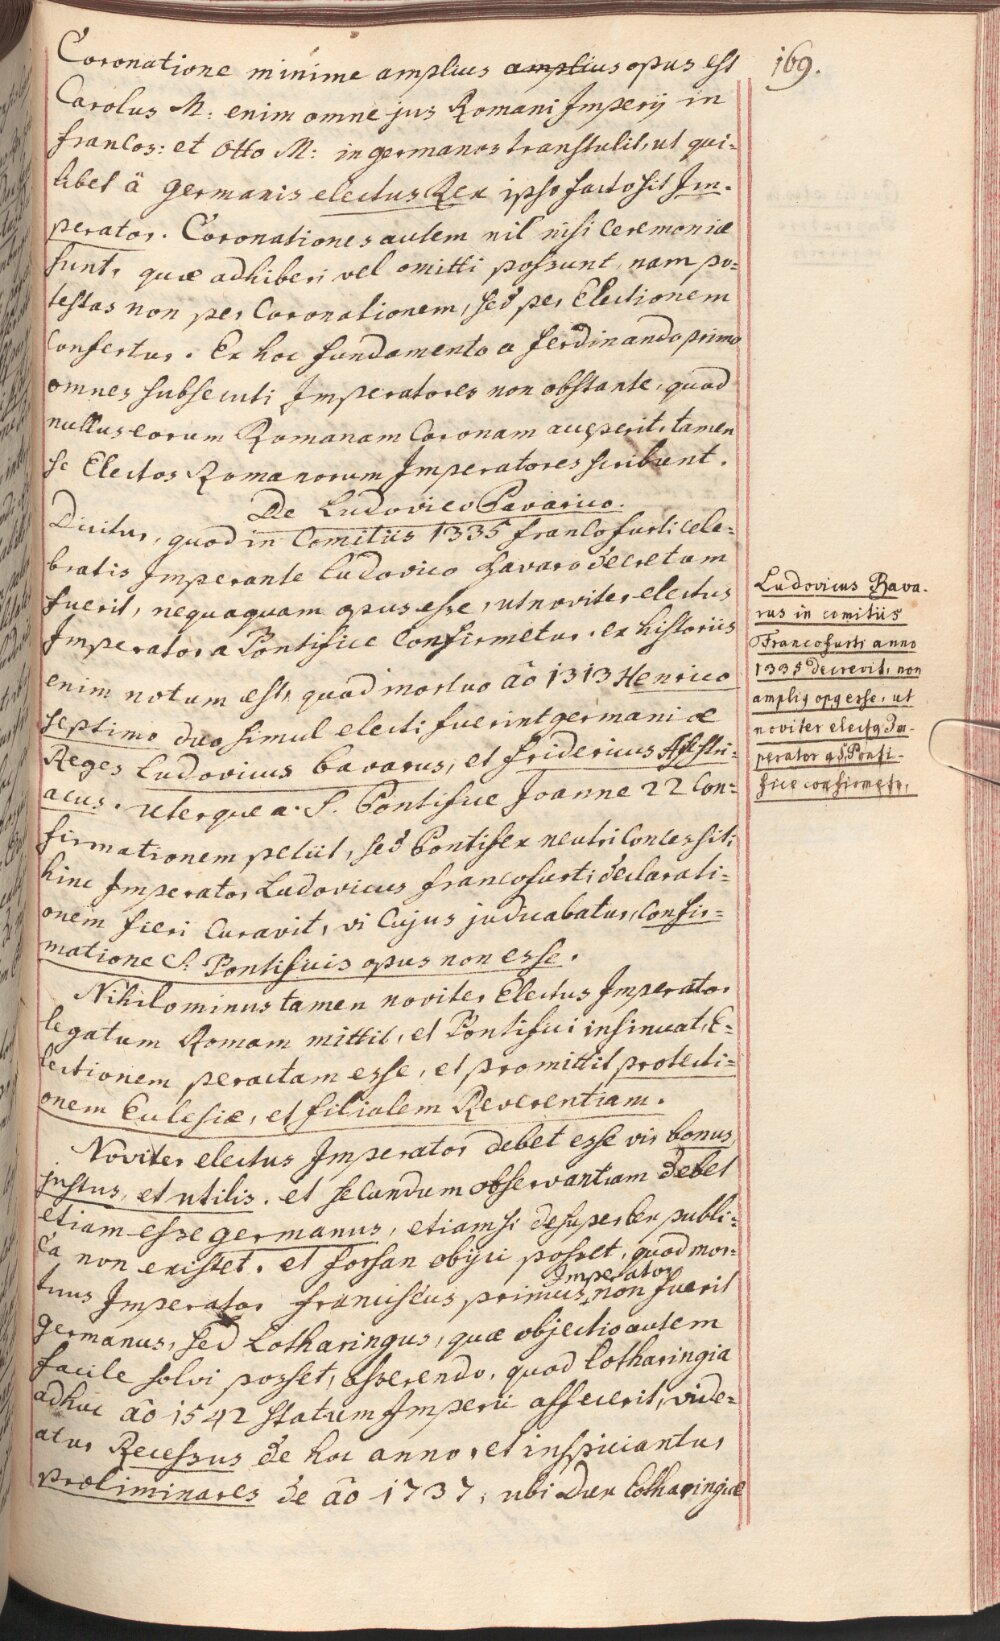 169.
Coronatione minime amplius amplius opus est
Carolus M: enim omne jus Romani Imperij in
francos: et Otto M: in germanos transtulit, ut qui-
libet â germanis electus Rex ipso facto sit Im-
perator. Coronationes autem nil nisi Ceremoniæ
sunt, quæ adhiberi vel omitti possunt, nam po-
testas non per Coronationem, sed per Electionem
Confertur. Ex hoc fundamento a ferdinando primo
omnes subsecuti Imperatores non obstante, quod
nullus eorum Romanam Coronam acceperit, tamen
se Electos Romanorum Imperatores scribunt.
De Ludovico Bavarico.
Dicitur, quod in Comitiis 1335 francofurti cele-
bratis Imperante Ludovico bavaro decretum
fuerit, nequaquam opus esse, ut noviter electus
Imperator a Pontifice Confirmetur. ex historiis
enim notum est, quod mortuo aô 1313 Henrico
septimo duo simul electi fuerint germaniæ
Reges Ludovicus bavarus, et fridericus Austri-
acus. uterque a S. Pontifice Joanne 22 Con-
firmationem petiit, sed Pontifex neutri Concessit,
hinc Imperator Ludovicus francofurti declarati-
onem fieri Curavit, vi Cujus judicabatur, Confir-
matione S. Pontificis opus non esse.
Nihilominus tamen noviter Electus Imperator
legatum Romam mittit, et Pontifici insinuat, E-
lectionem peractam esse, et promittit protecti-
onem Ecclesiæ, et filialem Reverentiam.
Noviter electus Imperator debet esse vir bonus,
justus, et utilis. et secundum observantiam debet
etiam esse germanus, etiamsi desuper lex publi-
ca non existet. et forsan objici posset, quod mor-
tuus Imperator franciscus primus Imperator non fuerit
germanus, sed Lotharingus, quæ objectio autem
facile solvi posset, asserendo, quod Lotharingia
adhuc aô 1542 statum Imperii affecerit, vide-
atur Recessus de hoc anno, et inspiciantur
præliminares de aô 1737, ubi Dux Lotharingiæ
Ludovicus Bava-
rus in comitiis
Francofurti anno
1335 decrevit, non
ampli9 op9 esse, ut
noviter elect9 Im-
perator a Ponti-
fice confirmetur.